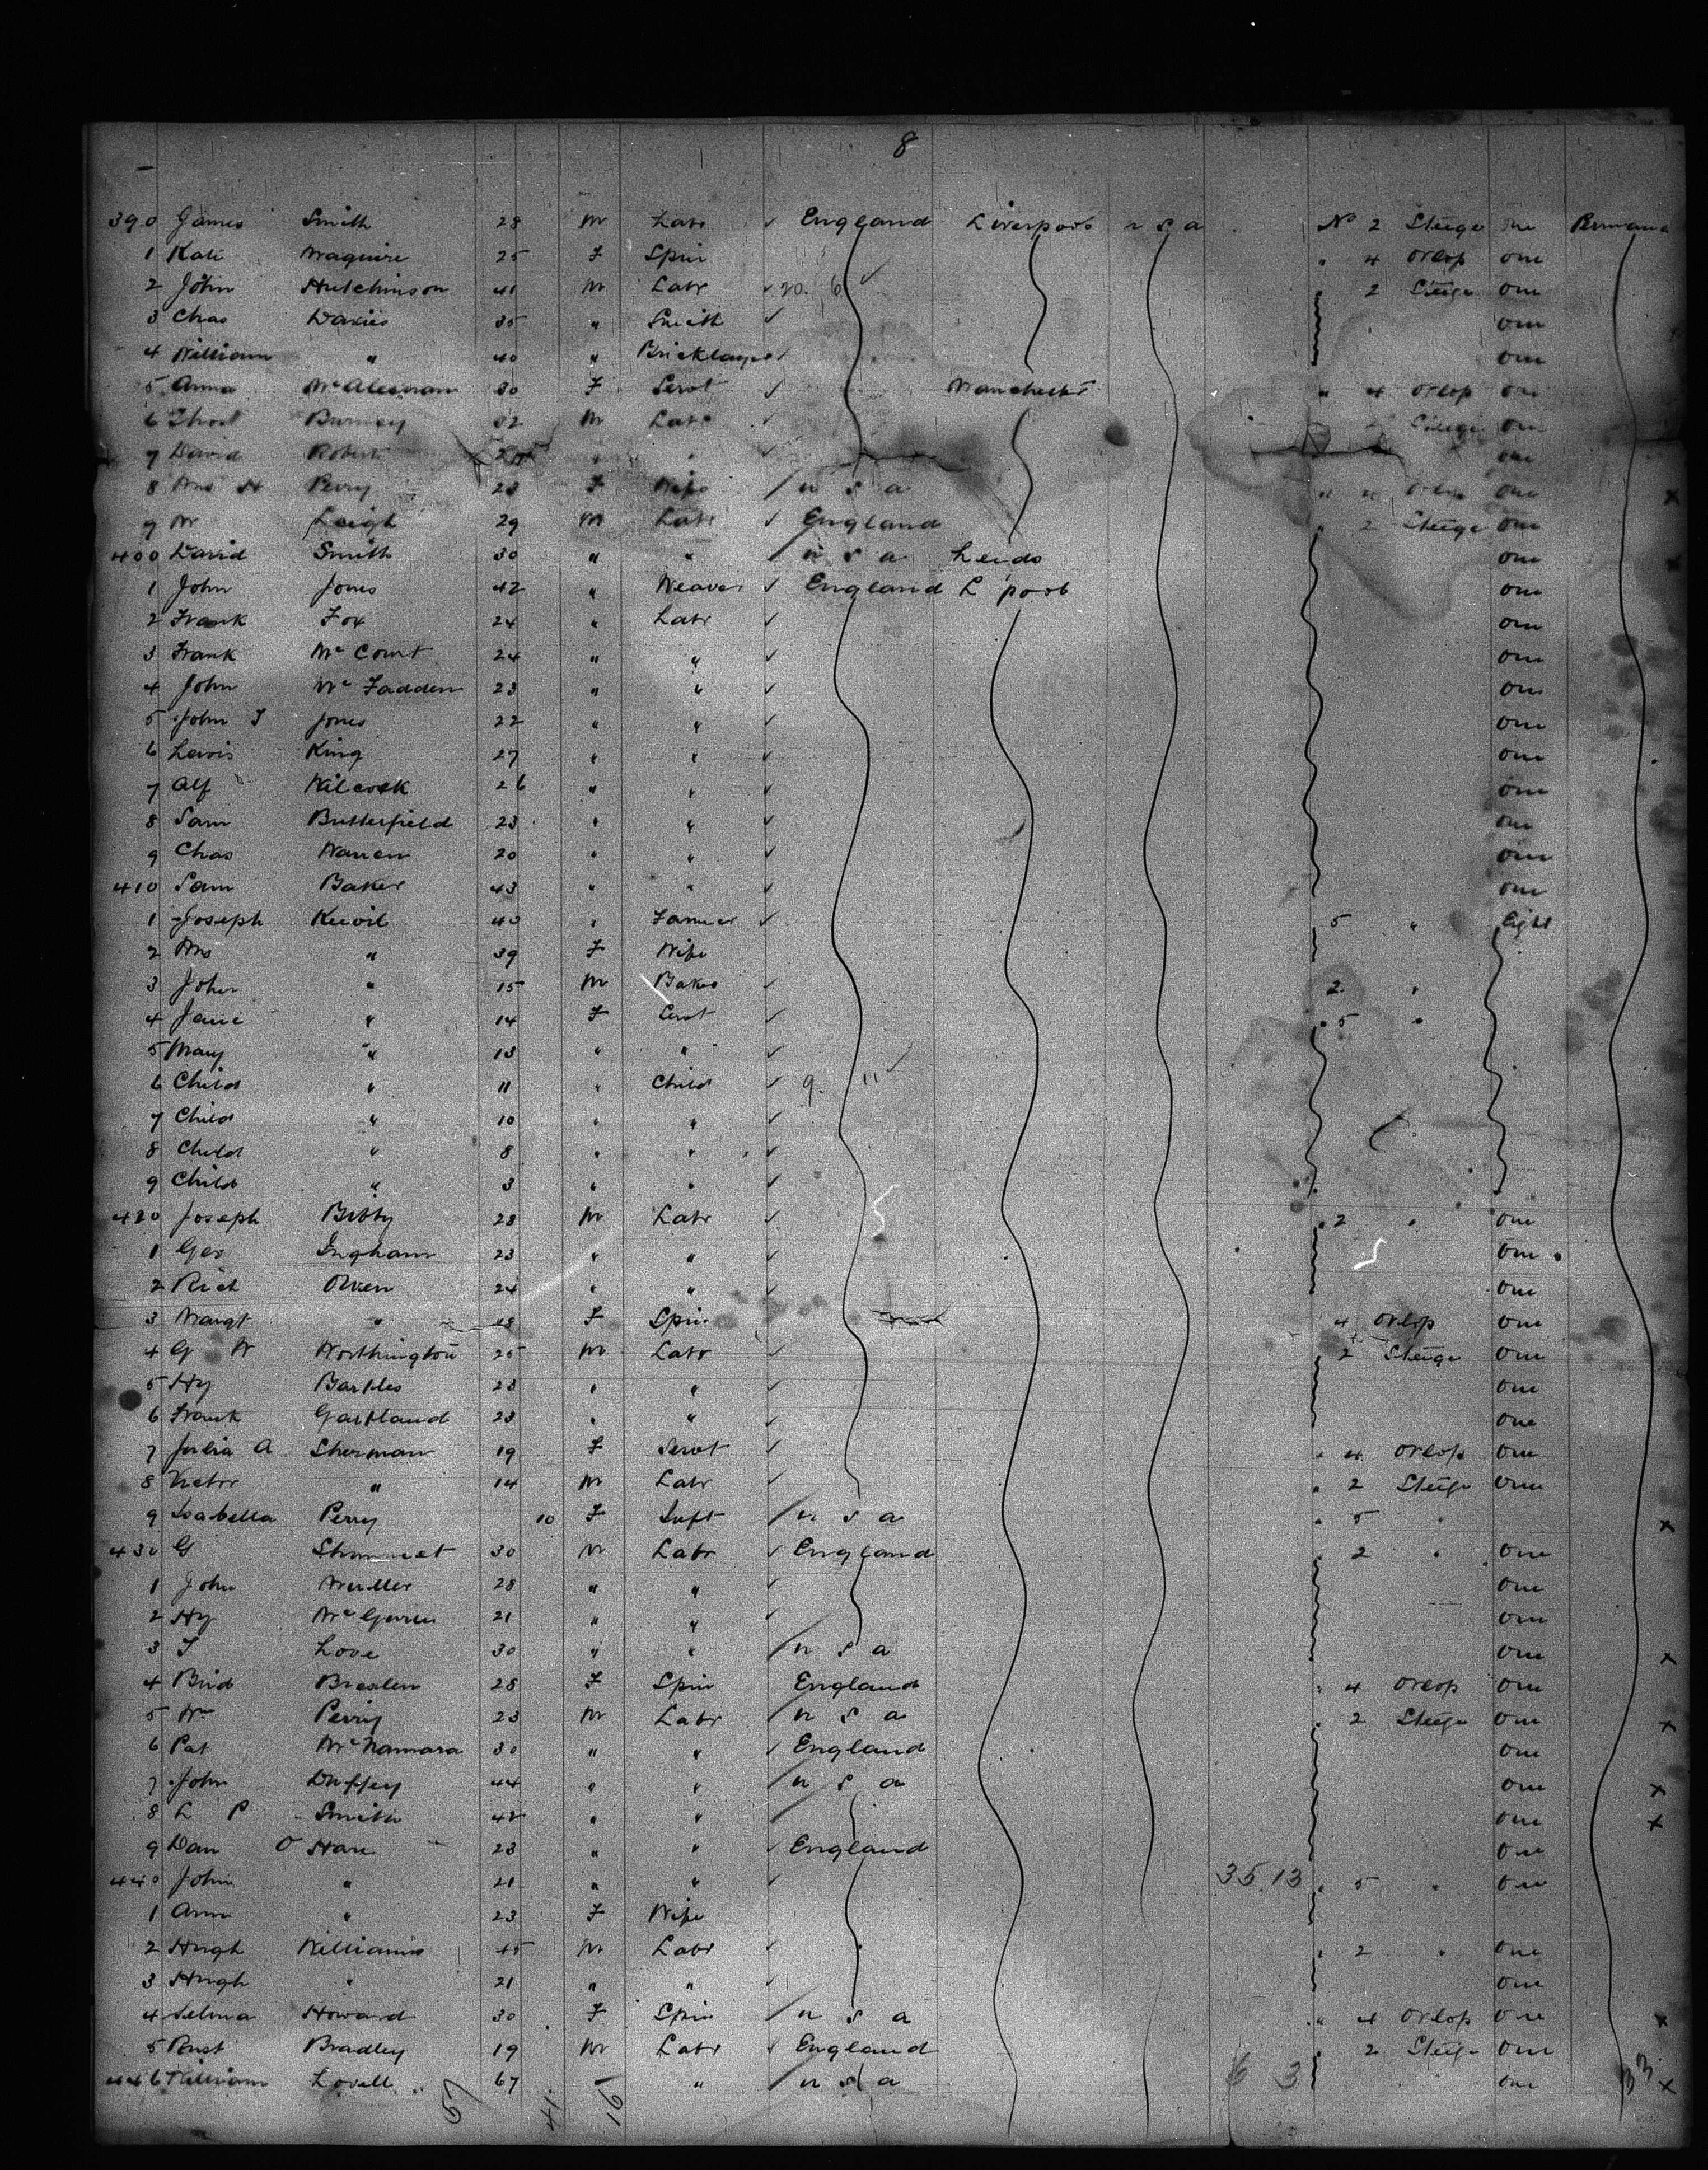 8
390 James Smith 28 m Labr ✓ England Liverpool u s a No 2 Steege one
1 Kate Maguire 25 F Spin " 4 Orlop one
2 John Hutchinson 41 m Labr ✓ 20. 6 ✓ 2 Steege one
3 Chas Davies 35 " Smith ✓ one
4 William " 40 " Bricklayer ✓ one
5 Anna 30 F Servt ✓ Manchester " 4 Orlop one
6 Burney 32 m Labr ✓ Steege one
7 David Robert " " ✓ one
8 Mrs H Perry 23 F Wife / u s a " 4 Orlop one x
9 W Leigh 29 m Labr ✓ England " 2 Steege one
400 David Smith 30 " " / u s a Leeds one x
1 John Jones 42 " Weaver ✓ England L'pool one
2 Frank Fox 24 " Labr ✓ one
3 Frank McCourt 24 " " ✓ one
4 John McFadden 23 " " ✓ one
5 John J Jones 22 " " ✓ one
6 Lewis King 27 " " ✓ one
7 Alf Wilcock 26 " " ✓ one
8 Sam Butterfield 23 " " ✓ one
9 Chas Warren 20 " " ✓ one
410 Sam Baker 43 " " ✓ one
1 Joseph 40 " Farmer ✓ 5 " Eight
2 Mrs " 39 F Wife
3 John " 15 m Baker ✓ 2 "
4 Jane " 14 F Servt ✓ " 5 "
5 Mary " 13 " " ✓
6 Child " 11 " Child ✓ 9. 11 ✓
7 Child " 10 " " ✓
8 Child " 8 " " ✓
9 Child " 3 " " ✓
420 Joseph Bibby 28 m Labr ✓ " 2 " one
1 Geo Ingham 23 " " ✓ one
2 Rich Owen 24 " " ✓ one
3 Margt " 48 F Spin 4 Orlop one
4 G W Worthington 25 m Labr ✓ 2 Steege one
5 Hy Bartles 23 " " ✓ one
6 Frank Gartland 23 " " ✓ one
7 Julia A Sherman 19 F Servt ✓ " 4 Orlop one
8 Victor " 14 m Labr ✓ " 2 Steege one
9 Isabella Perry 10 F Inft / u s a " 5 " x
430 G 30 m Labr ✓ England " 2 " one
1 John Muller 28 " " ✓ one
2 Hy 21 " " ✓ one
3 J Love 30 " " / u s a one x
4 Brid Breslen 28 F Spin England " 4 Orlop one
5 Wm Perry 23 m Labr / u s a " 2 Steege one x
6 Pat McNamara 30 " " ✓ England one
7 John Duffey 44 " " / u s a one x
8 L P Smith 42 " " / one x
9 Dan O Hare 23 " " ✓ England one
440 John " 21 " " ✓ 35.13 " 5 " one
1 Ann " 23 F Wife
2 Hugh Williams 45 m Labr ✓ " 2 " one
3 Hugh " 21 " " ✓ one
4 Selina Howard 30 F Spin / u s a " 4 Orlop one x
5 Bradley 19 m Labr ✓ England 2 Steege one
446 William Lovell 67 " / u s a 6 3 one 33 x
41 16